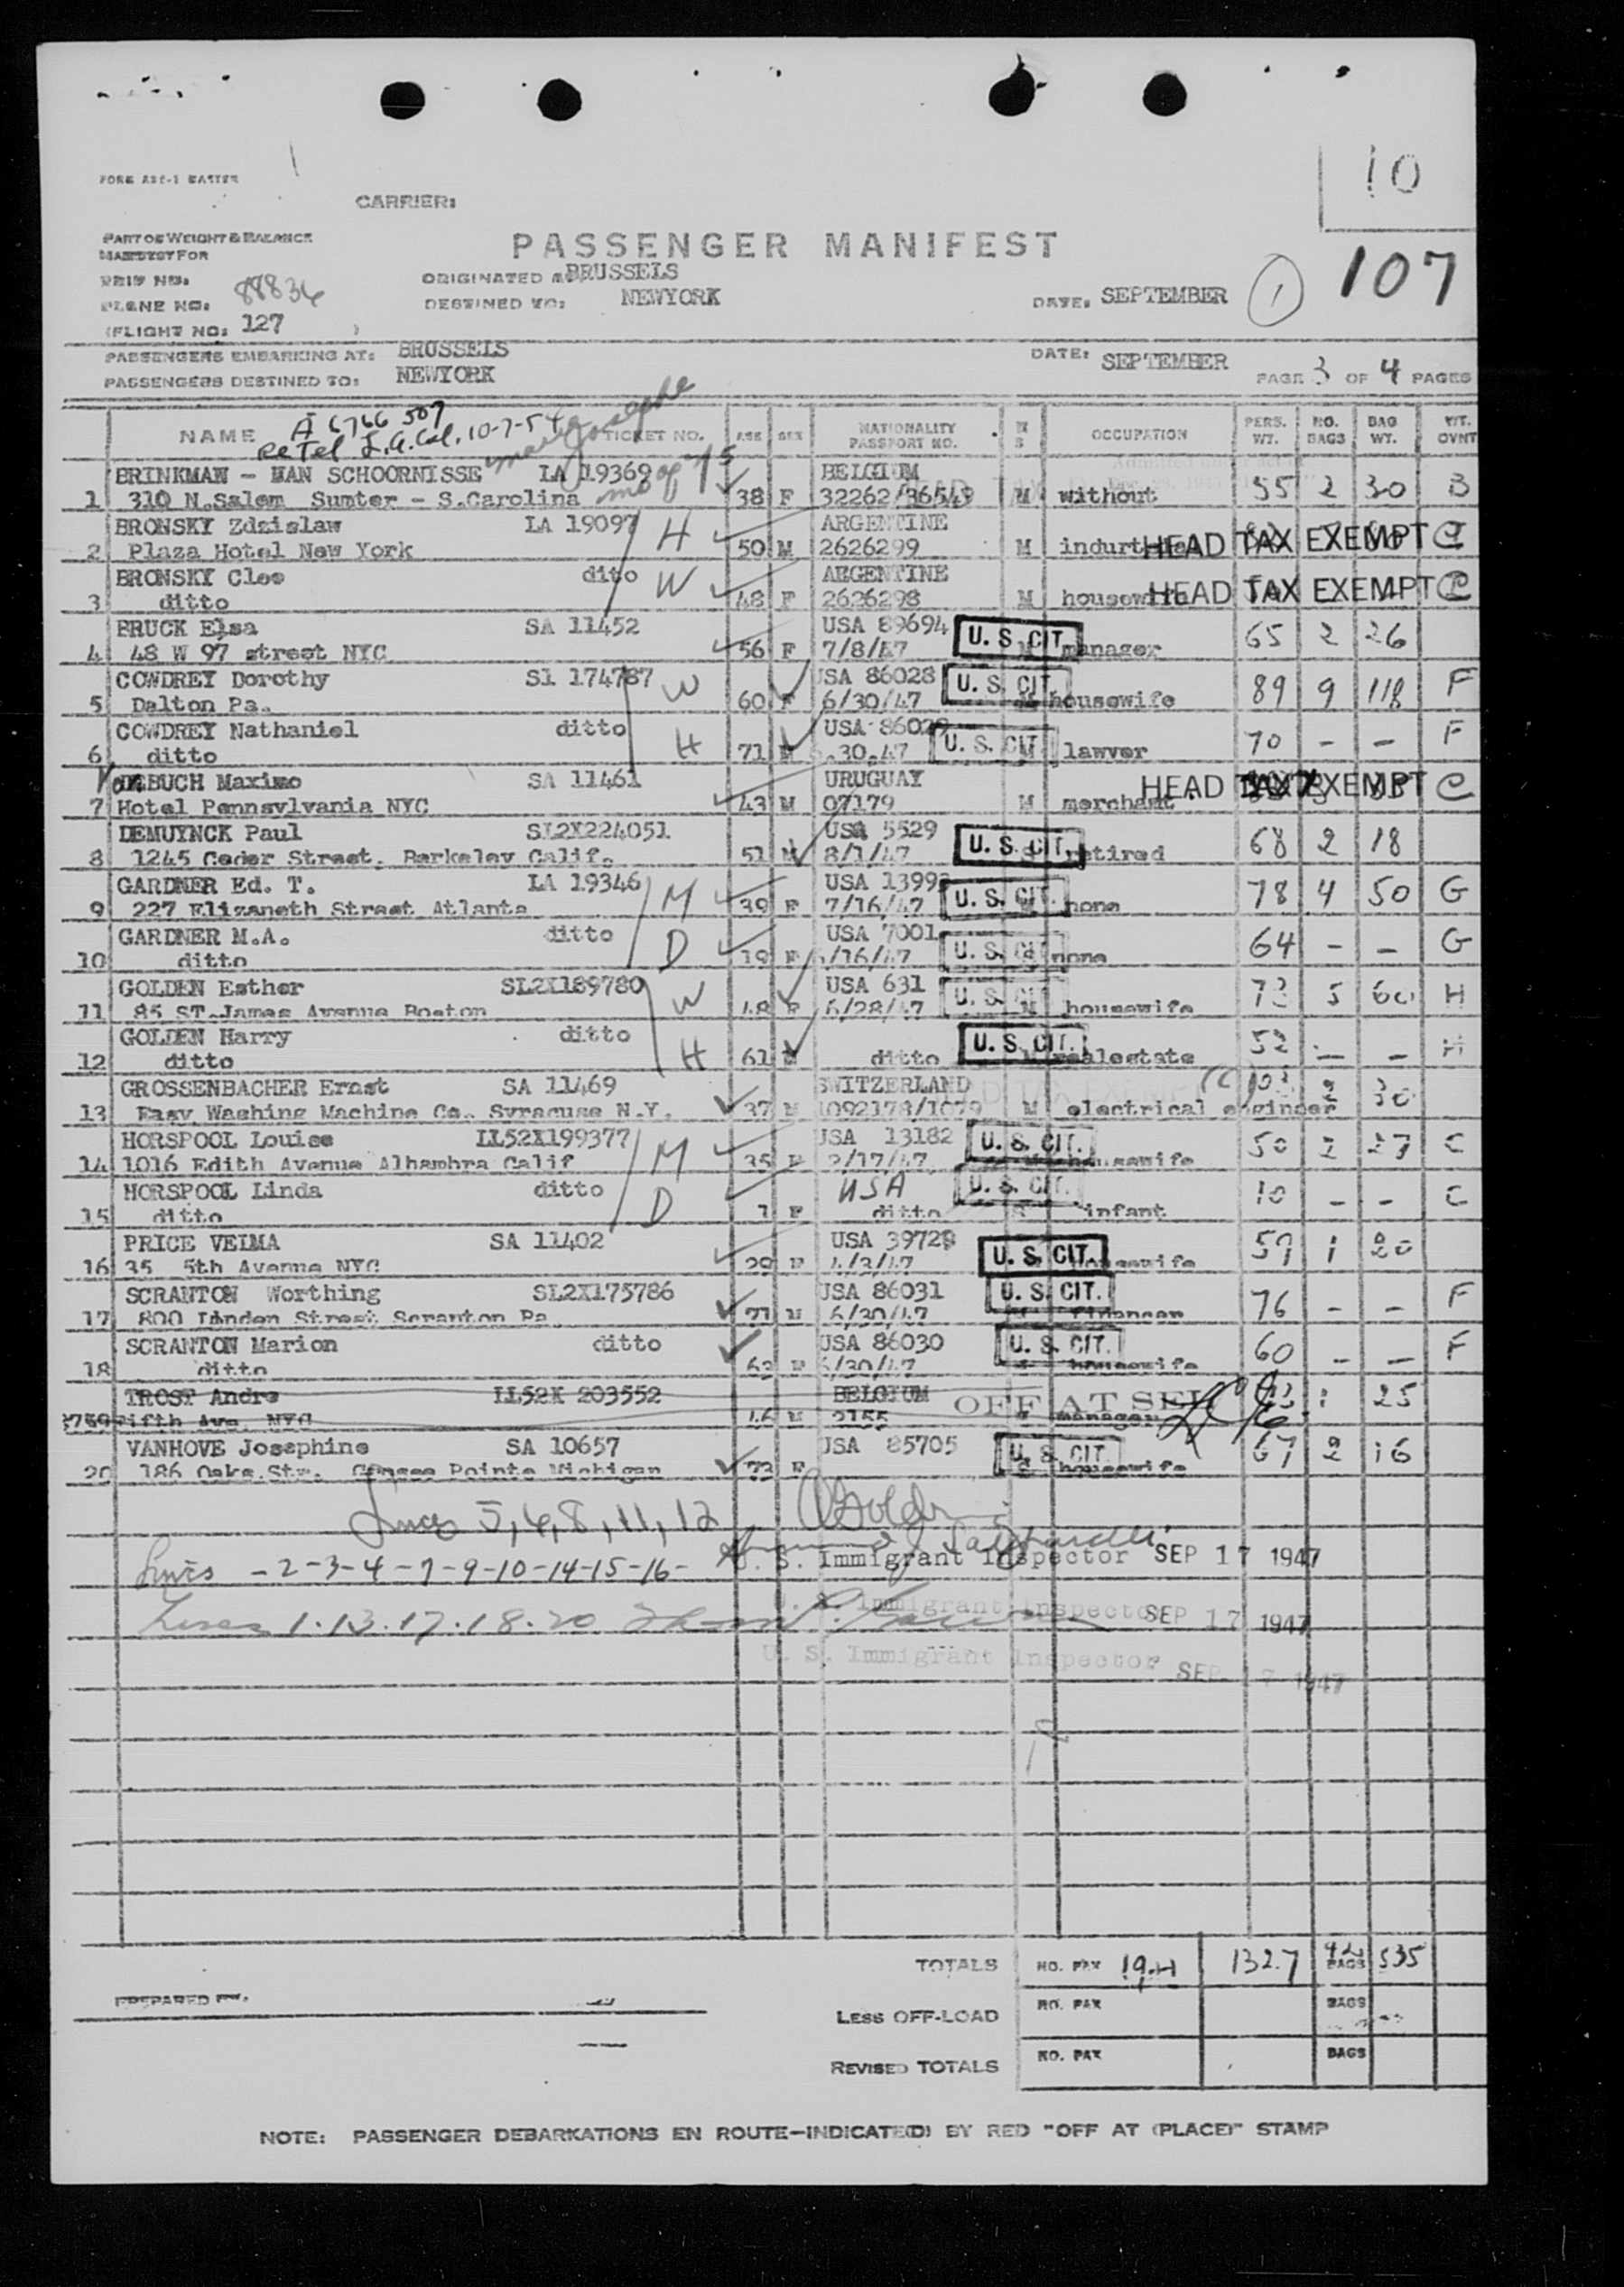 10
FORM
CARRIER:
PART OF WEIGHT & BALANCE
PASSENGER MANIFEST
107
MANIFEST FOR
ORIGINATED BRUSSELS
DESTINED TO: NEWYORK
DATE: SEPTEMBER 1
PLANE NO: 88836
FLIGHT NO: 127
PASSENGERS EMBARKING AT: BRUSSELS
DATE: SEPTEMBER
PASSENGERS DESTINED TO: NEWYORK
PAGE 3 OF 4 PAGES
A 6766 507
NAME TICKET NO. AGE SEX NATIONALITY PASSPORT NO. M S OCCUPATION PERS. WT. NO. BAGS BAG WT. WT. OVNT
10-7-54
BRINKMAN - WAN SCHOORNISSE LA 19369 BELGIUM
1 310 N.Salem Sumter - S.Carolina 38 F 32262/36549 M without 55 2 30 B
BRONSKY Zdzislaw LA 19097 H ARGENTINE
2 Plaza Hotel New York 50 M 2626299 M HEAD TAX EXEMPT C
BRONSKY Cleo dito W ARGENTINE
3 ditto 48 F 2626298 M housewife HEAD TAX EXEMPT C
BRUCK Elsa SA 11452 USA 89694 U.S. CIT.
4 48 W 97 street NYC 56 F 7/8/47 M manager 65 2 26
COWDREY Dorothy S1 174787 W USA 86028 U.S. CIT.
5 Dalton Pa. 60 F 6/30/47 housewife 89 9 118 F
COWDREY Nathaniel ditto H USA 86029 U.S. CIT.
6 ditto 71 M 6.30.47 lawyer 70 - - F
BUCH Maximo SA 11461 URUGUAY
7 Hotel Pennsylvania NYC 43 M 07179 M merchant HEAD TAX EXEMPT C
DEMUYNCK Paul SL2X224051 USA 5529 U.S. CIT.
8 1245 Ceder Street. Berkeley Calif. 51 M 8/1/47 retired 68 2 18
GARDNER Ed. T. LA 19346 M USA 13993 U.S. CIT.
9 227 Elizaneth Street Atlanta 39 F 7/16/47 none 78 4 50 G
GARDNER M.A. ditto D USA 7001 U.S. CIT.
10 ditto 19 F 7/16/47 none 64 - - G
GOLDEN Esther SL2X189780 W USA 631 U.S. CIT.
11 85 ST.James Avenue Boston 48 F 6/28/47 M housewife 73 5 60 H
GOLDEN Harry ditto H U.S. CIT.
12 ditto 61 M ditto realestate 52 - - H
GROSSENBACHER Ernst SA 11469 SWITZERLAND
13 Easy Washing Machine Co. Syracuse N.Y. 37 M 1092178/1079 M electrical engineer 2 30
HORSPOOL Louise LL52X199377 M USA 13182 U.S. CIT.
14 1016 Edith Avenue Alhambra Calif 35 F 2/17/47 housewife 50 2 27 C
HORSPOOL Linda ditto D USA U.S. CIT.
15 ditto 1 F ditto infant 10 - - C
PRICE VELMA SA 11402 USA 39729 U.S. CIT.
16 35 5th Avenue NYC 29 F 4/3/47 housewife 59 1 20
SCRANTON Worthing SL2X175786 USA 86031 U.S. CIT.
17 800 Linden Street Scranton Pa 71 M 6/30/47 financer 76 - - F
SCRANTON Marion ditto USA 86030 U.S. CIT.
18 ditto 63 F 6/30/47 housewife 60 - - F
TROST Andre LL52X 203552 BELGIUM OFF AT
Fifth Ave. NYC 46 M 2155 manager 1 25
VANHOVE Josephine SA 10657 USA 85705 U.S. CIT.
20 186 Oaks.Str. Pointe Michigan 73 F housewife 67 2 16
Lines 5, 6, 8, 11, 12
Lines - 2-3-4-7-9-10-14-15-16- U. S. Immigrant Inspector SEP 17 1947
Lines 1. 13. 17. 18. 20 U. S. Immigrant Inspector SEP 17 1947
U. S. Immigrant Inspector SEP 17 1947
TOTALS NO. PAX 1327 BAGS 535
PREPARED BY.
LESS OFF-LOAD NO. PAX BAGS
REVISED TOTALS NO. PAX BAGS
NOTE: PASSENGER DEBARKATIONS EN ROUTE-INDICATE(D) BY RED "OFF AT (PLACE)" STAMP